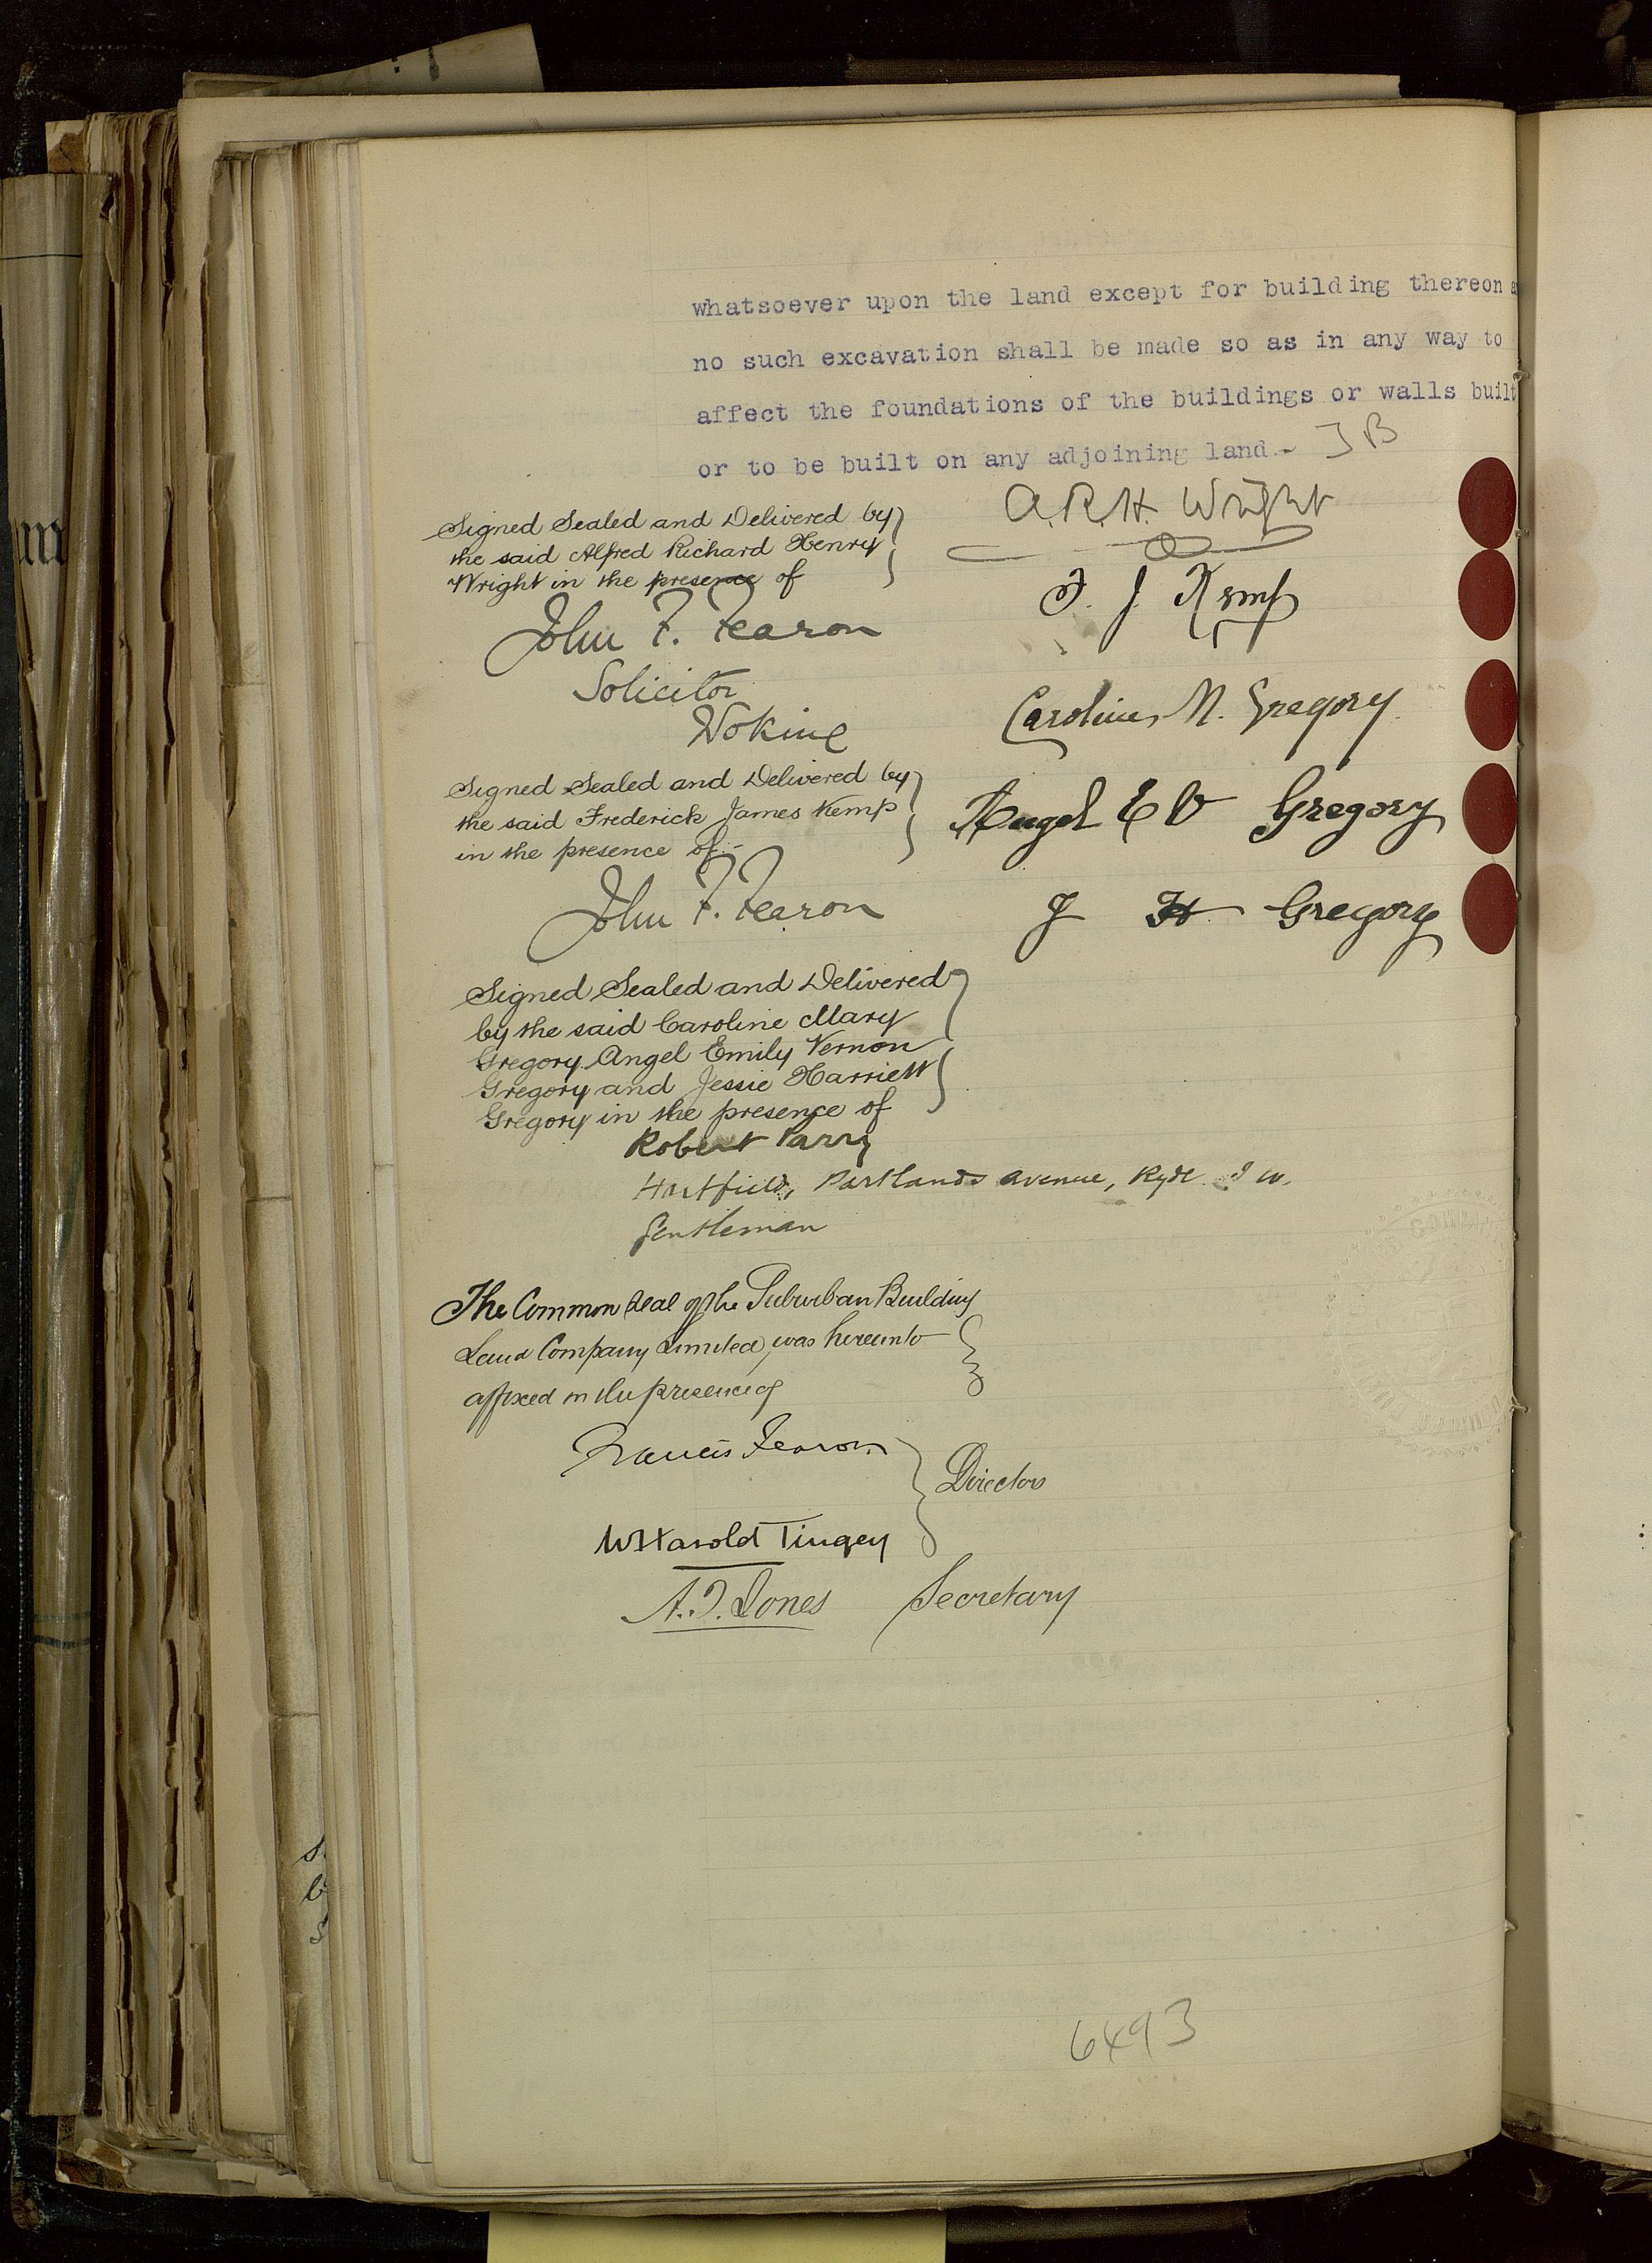 whatsoever upon the land except for building thereon
no such excavation shall be made so as in any way to
affect the foundations of the buildings or walls built
or to be built on any adjoining land.- J B
Signed Sealed and Delivered by
the said Alfred Richard Henry
Wright in the presence of
A.R.H. Wright
John F. Fearon
Solicitor
Woking
F. J. Kemp
Caroline M. Gregory
Signed Sealed and Delivered by
the said Frederick James Kemp
in the presence of:-
Angel E V Gregory
John F. Fearon
J H Gregory
Signed Sealed and Delivered
by the said Caroline Mary
Gregory Angel Emily Vernon
Gregory and Jessie Harriett
Gregory in the presence of
Robert Parry
Partlands Avenue, Ryde I W.
Gentleman
The Common Seal of the Suburban Building
Land Company Limited, was hereunto
affixed in the presence of
Francis Fearon
Directors
W Harold Tingey
A. J. Jones Secretary
6493